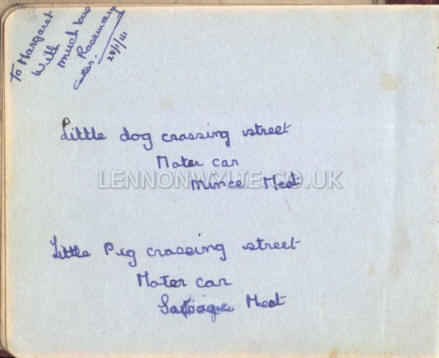 To Margaret
With
much love
Rosemary
28/1/41
Little dog crossing street
Moter car
Mince Meat
LENNONWYLIE.CO.UK
Little Pig crossing street
Moter car
Sausage Meat